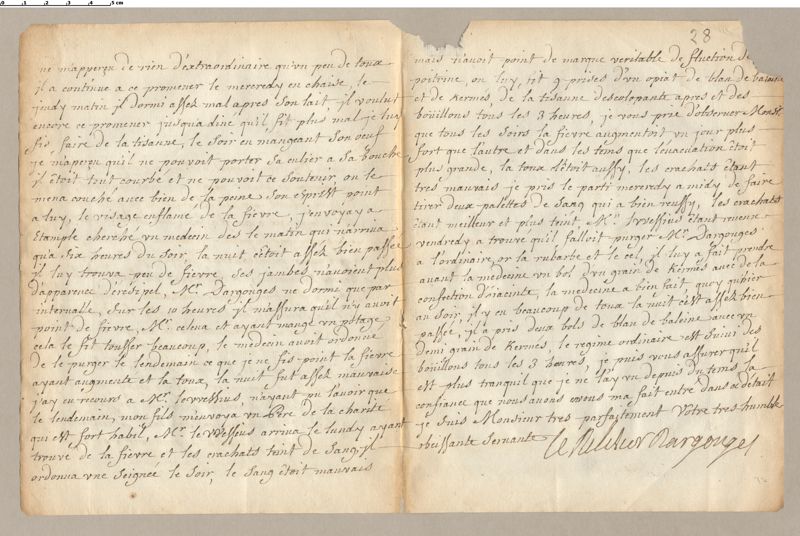 ne m'apperçu de rien d'extraordinaire qu'vn peu de toux
il a continue a ce promener le mercredy en chaise, le
jeudy matin il dormi assez mal apres son lait, il voulut
encore ce promener jusqua dine qu'il fit plus mal je luy
fis faire de la tisanne, le soir en mangeant son oeuf
je m'aperçu qu'il ne pouvoit porter sa culier a sa bouche
il étoit tout courbé et ne pouvoit ce soutenir, on le
mena couche avec bien de la peine son esprit point
a luy, le visage enflamé de la fievre, j'envoya a
Etample cherché vn medecin des le matin qui n'arriva
qu'a six heures du soir, la nuit c'étoit assez bien passée
il luy trouva peu de fievre, ses jambes n'avoient plus
d'apparence d'eresipel, Mr. Dargouges ne dormi que par
intervalle, sur les 10 heures il m'assura qu'il n'y avoit
point de fievre, Mr. et ayant mangé vn potage
cela le fit tousser beaucoup, le medecin avoit ordonné
de le purger le lendemain ce que je ne fis point la fievre
ayant augmenté et la toux, la nuit fut assez mauvaise
j'ay eu recours a Mr. n'ayant pu l'avoir que
le lendemain, mon fils m'envoya vn Pere de la charité
qui est fort habil, Mr. arriva le lundy ayant
trouvé de la fievre et les crachats teint de sang, il
ordonna vne seignée le soir, le sang étoit mauvais
28
mais n'avoit point de marque veritable de fluction de
poitrine, on luy fit 9 prises d'vn opiat de blan de baleine
et de Kermes, de la tisanne apres et des
boüillons tous les 3 heures, je vous prie d'observer Monsr.
que tous les soirs la fievre augmentoit vn jour plus
fort que l'autre et dans les tems que l'evacuation étoit
plus grande, la toux l'étoit aussy, les crachats étant
tres mauvais je pris le parti mercredy a midy de faire
tirer deux palettes de sang qui a bien reussy, les crachats
étant meilleur et plus teint Mr. étant revenu
vendredy a trouvé qu'il falloit purger Mr. Dargouges
a l'ordinaire, or la rubarbe et le cel, il luy a fait prendre
avant la medecine vn bol d'vn grain de Kermes avec de la
confection d'iacinte, la medecine a bien fait quoy qu'hier
au soir, il y eu beaucoup de toux la nuit c'est assez bien
passée, il a pris deux bols de blan de baleine avec vn
demi grain de Kermes, le regime ordinaire est suivi des
boüillons tous les 3 heures, je puis vous assurer qu'il
est plus tranquil que je ne l'ay vu depuis du tems, la
confiance que nous avons en vous ma fait entré dans ce détail
je suis Monsieur tres parfaitement Votre tres humble
obeissante servante Dargouges